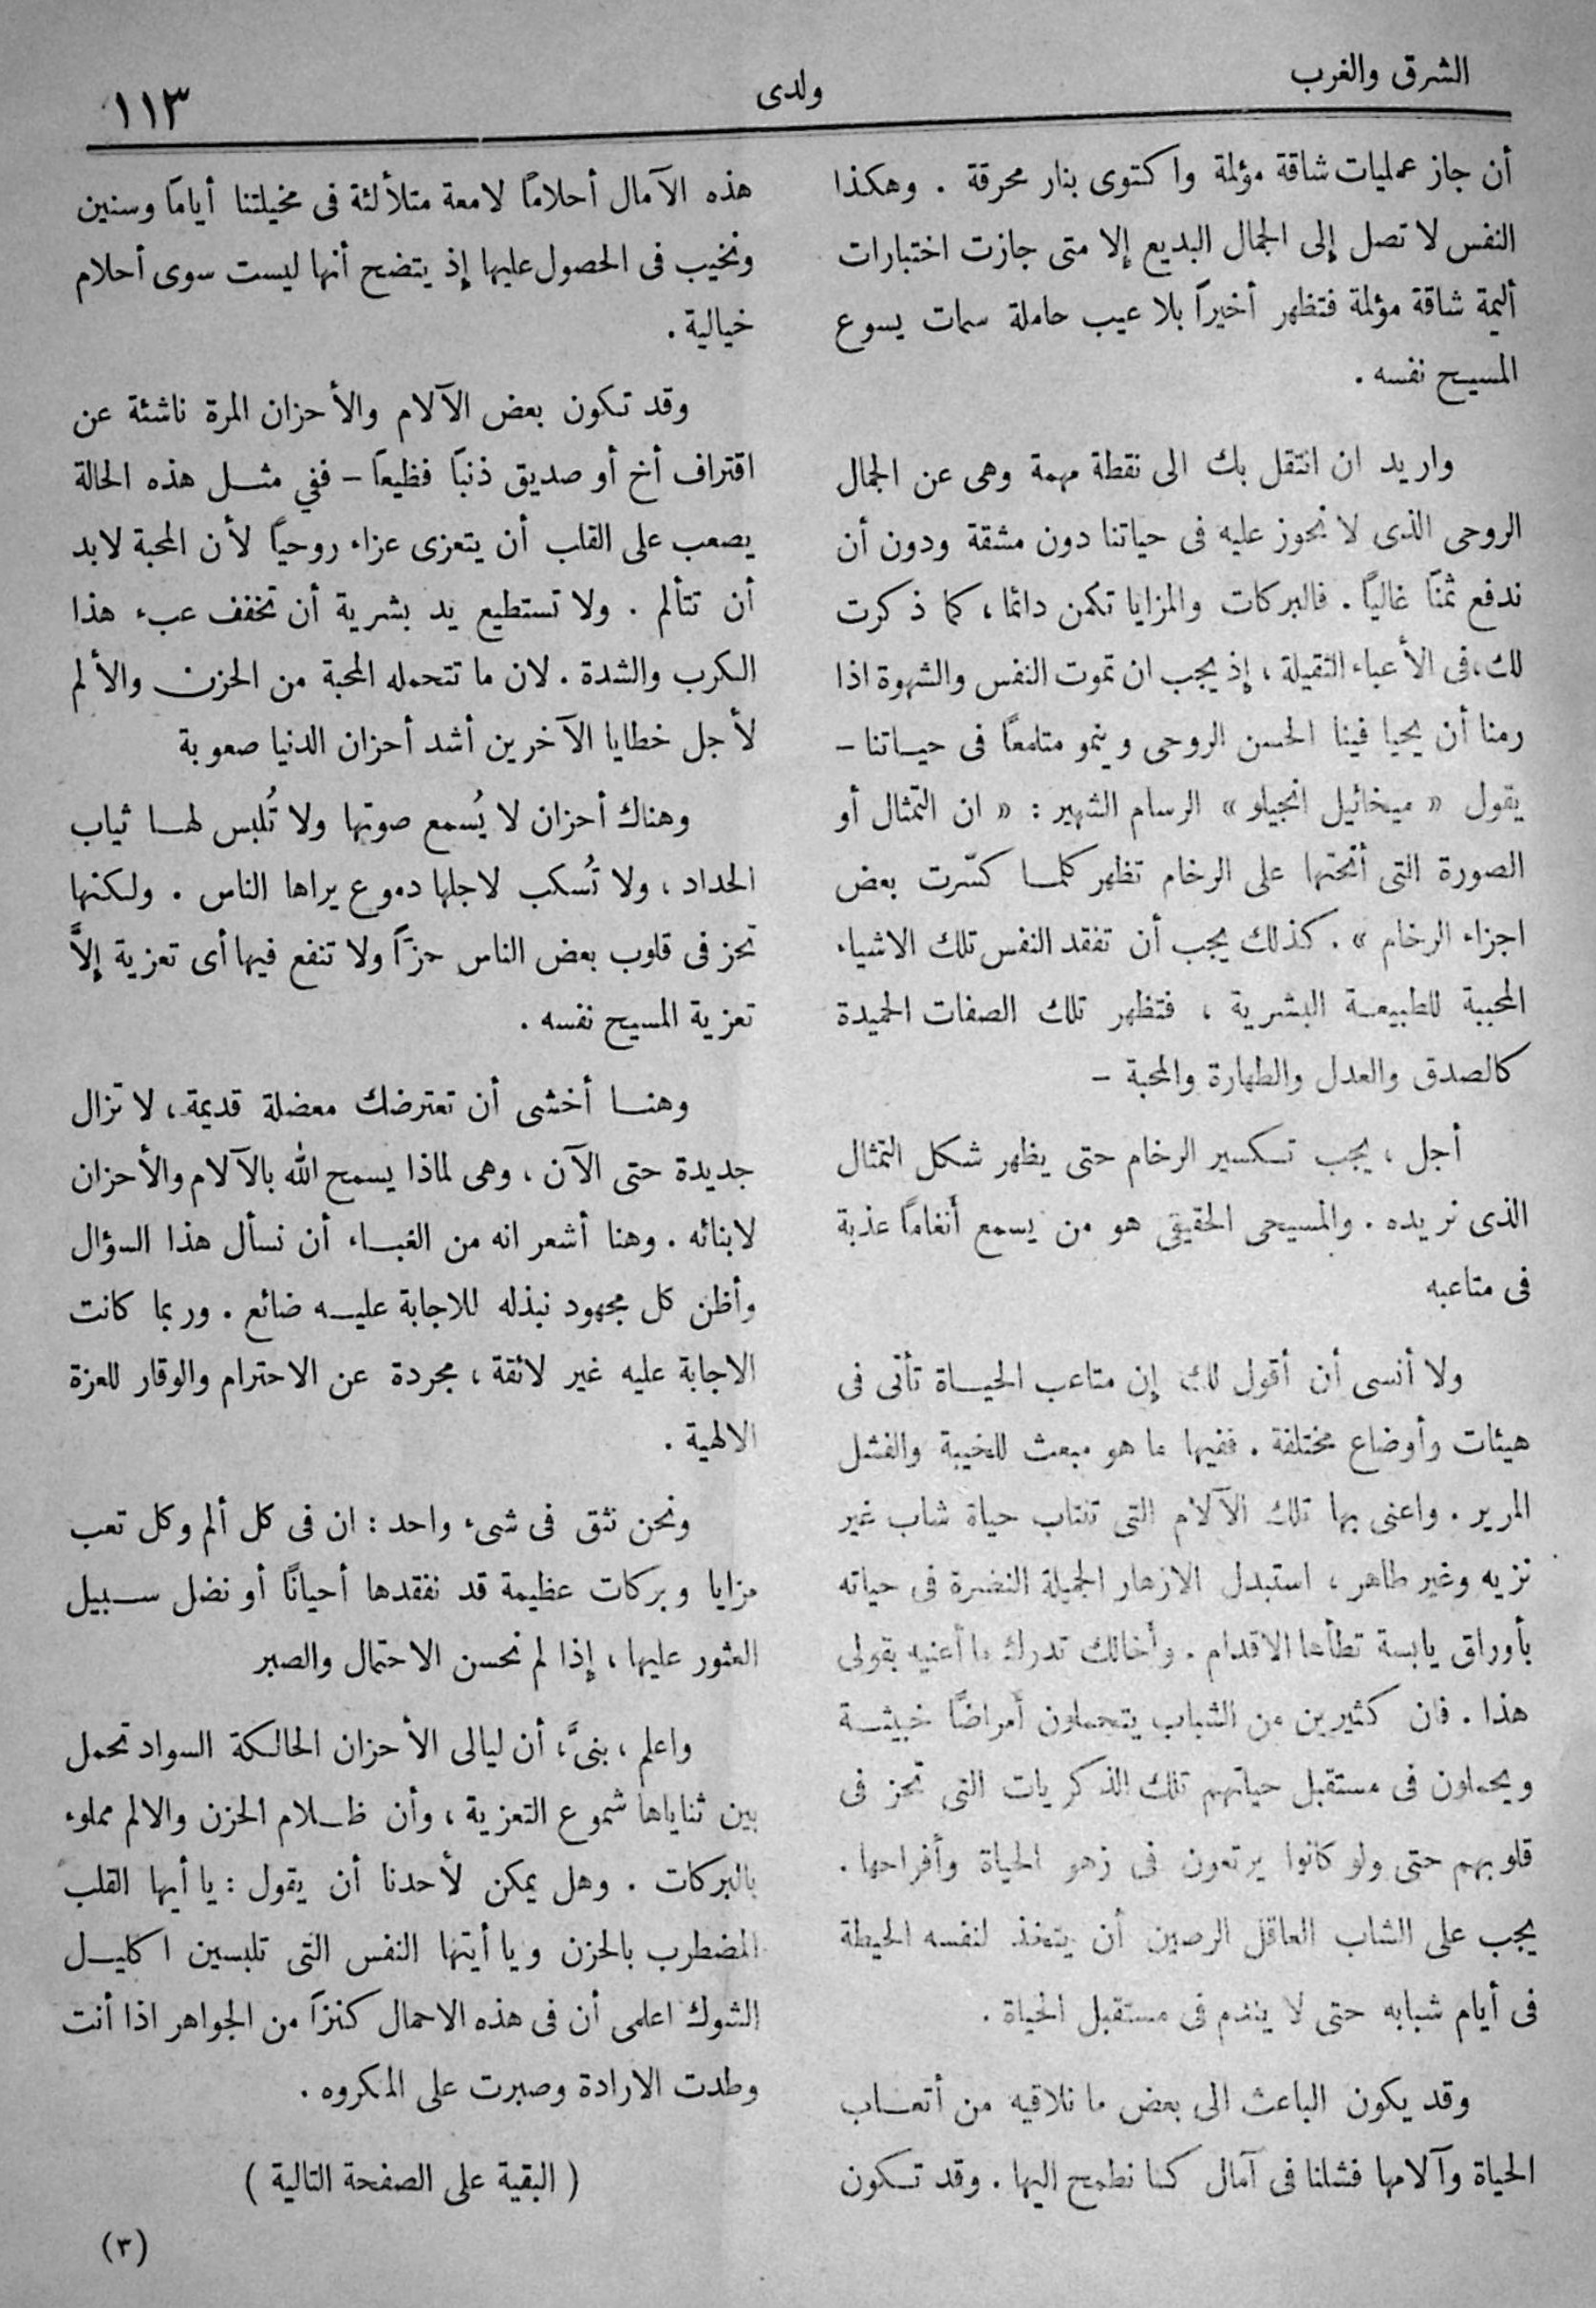 الشرق والغرب
ولدى
١١٣
أن جاز عمليات شاقة مؤلمة واكتوى بنار محرقة . وهكذا
النفس لا تصل إلى الجمال البديع إلا متى جازت اختبارات
أليمة شاقة مؤلمة فتظهر أخيراً بلا عيب حاملة سمات يسوع
المسيح نفسه .
واريد ان انتقل بك الى نقطة مهمة وهى عن الجمال
الروحى الذى لا نحوز عليه فى حياتنا دون مشقة ودون أن
ندفع ثمنًا غالياً . فالبركات والمزايا تكمن دائما ، كما ذكرت
لك ، فى الأعباء الثقيلة ، إذ يجب ان تموت النفس والشهوة اذا
رمنا أن يحيا فينا الحسن الروحى وينمو متلمعاً فى حياتنا –
يقول « ميخائيل انجيلو » الرسام الشهير : « ان التمثال أو
الصورة التى أنحتها على الرخام تظهر كلما كسّرت بعض
اجزاء الرخام » . كذلك يجب أن تفقد النفس تلك الاشياء
المحببة للطبيعة البشرية ، فتظهر تلك الصفات الحميدة
كالصدق والعدل والطهارة والمحبة –
أجل ، يجب تكسير الرخام حتى يظهر شكل التمثال
الذى نريده . والمسيحى الحقيقى هو من يسمع أنغاماً عذبة
فى متاعبه
ولا أنسى أن أقول لك إن متاعب الحياة تأتى فى
هيئات وأوضاع مختلفة . ففيها ما هو مبعث للخيبة والفشل
المرير . واعنى بها تلك الآلام التى تنتاب حياة شاب غير
نزيه وغير طاهر ، استبدل الازهار الجميلة النضرة فى حياته
بأوراق يابسة تطأها الاقدام . وأخالك تدرك ما أعنيه بقولى
هذا . فان كثيرين من الشباب يتحملون أمراضًا خبيثة
ويحملون فى مستقبل حياتهم تلك الذكريات التى تحز فى
قلوبهم حتى ولو كانوا يرتعون فى زهو الحياة وأفراحها .
يجب على الشاب العاقل الرصين أن يتخذ لنفسه الحيطة
فى أيام شبابه حتى لا يندم فى مستقبل الحياة .
وقد يكون الباعث الى بعض ما نلاقيه من أتعاب
الحياة وآلامها فشلنا فى آمال كنا نطمح اليها . وقد تكون
هذه الآمال أحلامًا لامعة متلألئة فى مخيلتنا أيامًا وسنين
ونخيب فى الحصول عليها إذ يتضح أنها ليست سوى أحلام
خيالية .
وقد تكون بعض الآلام والأحزان المرة ناشئة عن
اقتراف أخ أو صديق ذنبًا فظيعاً – ففي مثل هذه الحالة
يصعب على القلب أن يتعزى عزاء روحياً لأن المحبة لابد
أن تتألم . ولا تستطيع يد بشرية أن تخفف عبء هذا
الكرب والشدة . لان ما تتحمله المحبة من الحزن والألم
لأجل خطايا الآخرين أشد أحزان الدنيا صعوبة
وهناك أحزان لا يُسمع صوتها ولا تُلبس لها ثياب
الحداد ، ولا تُسكب لاجلها دموع يراها الناس . ولكنها
تحز فى قلوب بعض الناس حزاً ولا تنفع فيها أى تعزية إلاَّ
تعزية المسيح نفسه .
وهنا أخشى أن تعترضك معضلة قديمة ، لا تزال
جديدة حتى الآن ، وهى لماذا يسمح الله بالآلام والأحزان
لابنائه . وهنا أشعر انه من الغباء أن نسأل هذا السؤال
وأظن كل مجهود نبذله للاجابة عليه ضائع . وربما كانت
الاجابة عليه غير لائقة ، مجردة عن الاحترام والوقار للعزة
الالهية .
ونحن نثق فى شىء واحد : ان فى كل ألم وكل تعب
مزايا وبركات عظيمة قد نفقدها أحيانًا أو نضل سبيل
العثور عليها ، إذا لم نحسن الاحتمال والصبر
واعلم ، بنىَّ ، أن ليالى الأحزان الحالكة السواد تحمل
بين ثناياها شموع التعزية ، وأن ظلام الحزن والالم مملوء
بالبركات . وهل يمكن لأحدنا أن يقول : يا أيها القلب
المضطرب بالحزن ويا أيتها النفس التى تلبسين اكليل
الشوك اعلمى أن فى هذه الاحمال كنزاً من الجواهر اذا أنت
وطدت الارادة وصبرت على المكروه .
( البقية على الصفحة التالية )
(٣)